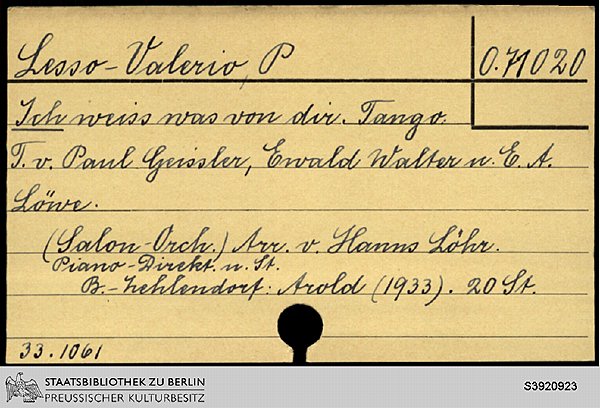 Lesso-Valerio, P
O.71020
Ich weiss was von dir. Tango.
T. v. Paul Geissler, Ewald Walter u. E. A.
Löwe.
(Salon-Orch.) Arr. v. Hanns Löhr.
Piano-Direkt. u. St.
B.-Zehlendorf: Arold (1933). 20 St.
33.1061
STAATSBIBLIOTHEK ZU BERLIN
PREUSSISCHER KULTURBESITZ
S3920923